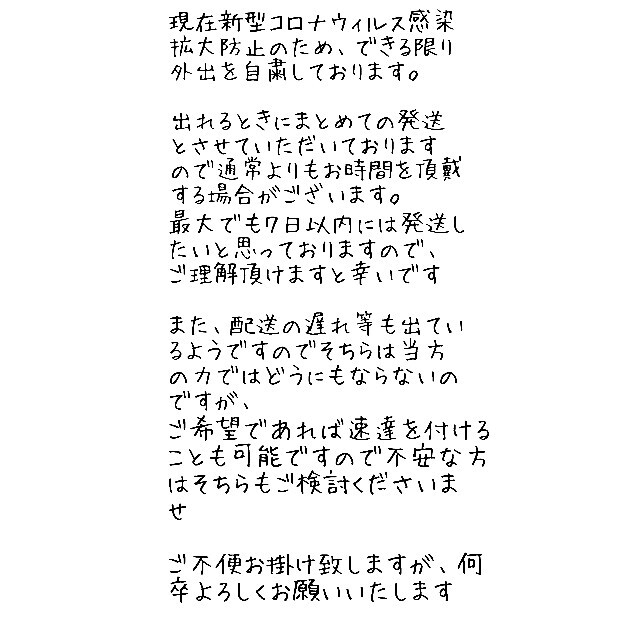 現在新型コロナウィルス感染
拡大防止のため、できる限り
外出を自粛しております。
出れるときにまとめての発送
とさせていただいております
ので通常よりもお時間を頂戴
する場合がございます。
最大でも7日以内には発送し
たいと思っておりますので、
ご理解頂けますと幸いです
また、配送の遅れ等も出てい
るようですのでそちらは当方
の力ではどうにもならないの
ですが、
ご希望であれば速達を付ける
ことも可能ですので不安な方
はそちらもご検討くださいま
せ
ご不便お掛け致しますが、何
卒よろしくお願いいたします